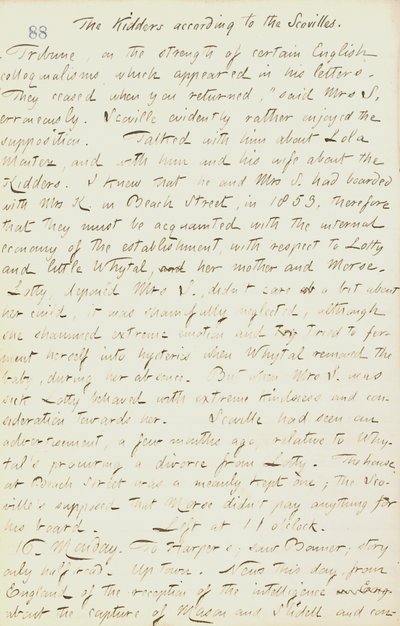 88
The Kidders according to the Scovilles.
Tribune, on the strength of certain English
colloquialisms which appeared in his letters.
"They ceased when you returned," said Mrs S,
erroneously. Scoville evidently rather enjoyed the
supposition. Talked with him about Lola
Montez, and with him and his wife about the
Kidders. I knew that he and Mrs S. had boarded
with Mrs K. in Beach Street, in 1853, therefore
that they must be acquainted with the internal
economy of the establishment, with respect to Lotty
and little Whytal, and her mother and Morse.
Lotty, deposed Mrs S., didn't care a bit about
her child, it was shamefully neglected, although
she shammed extreme emotion and tried to fer-
ment herself into hysterics when Whytal removed the
baby, during her absence. But when Mrs S. was
sick Lotty behaved with extreme kindness and con-
sideration towards her. Scoville had seen an
advertisement, a few months ago, relative to Why-
tal's procuring a divorce from Lotty. The house
at Beach Street was a meanly kept one; the Sco-
ville's supposed that Morse didn't pay anything for
his board. Left at 11 o'clock.
16. Monday. To Harper's; saw Bonner; story
only half read. Up town. News this day from
England of the reception of the intelligence
about the capture of Mason and Slidell and con-